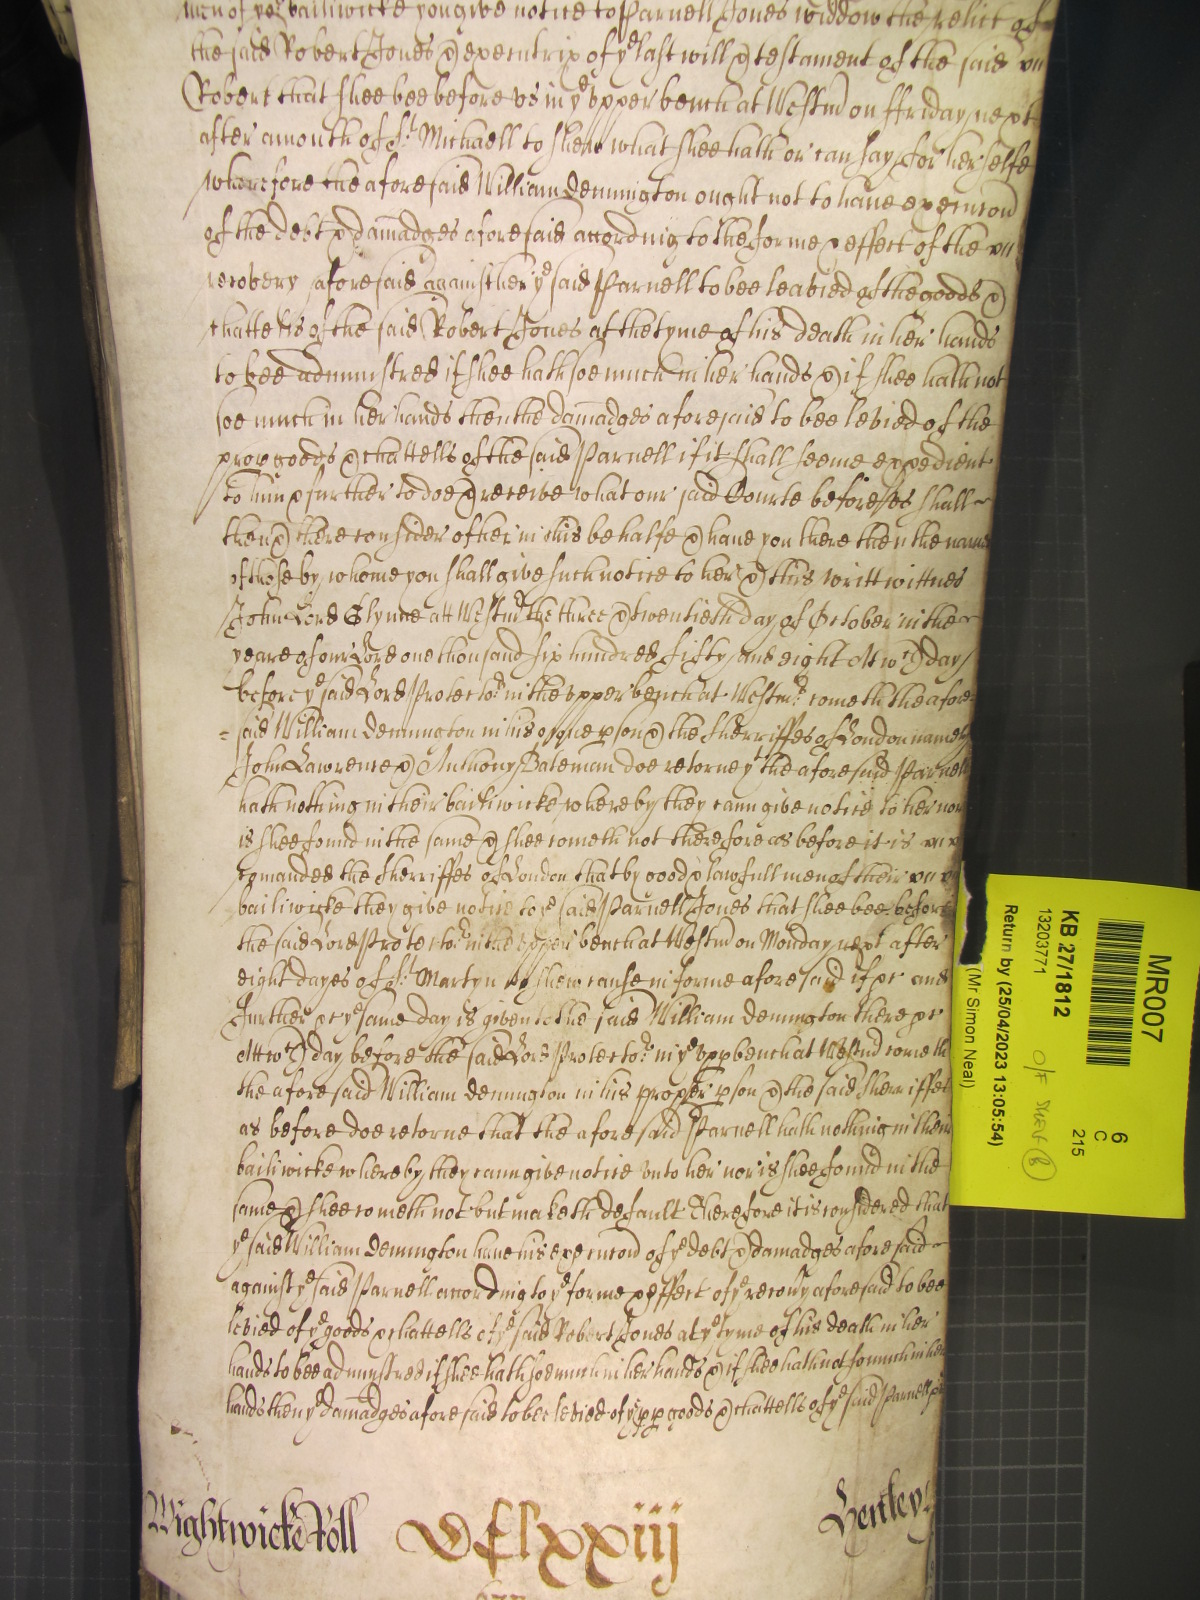 men of yor bailiwicke you give notice to Parnell Jones widdow the relict of
the said Robert Jones & executrix of ye last will & testament of the said
Robert that shee bee before us in ye upper bench at Westmr on ffriday next
after a month of St Michaell to shew what shee hath or can say for her selfe
wherefore the aforesaid William Dennington ought not to have execucon
of the debt & damadges aforesaid according to the forme & effect of the
recovery aforesaid against her ye said Parnell to bee leavied of the goods &
chattells of the said Robert Jones at the tyme of his death in her hands
to bee administred if shee hath soe much in her hands & if shee hath not
soe much in her hands then the damadges aforesaid to bee levied of the
prop goods & chattells of the said Parnell if it shall seeme expedient
to him & further to doe & receive what our said Courte before us shall
then & there consider of her in this behalfe & have you there then the names
of those by whome you shall give such notice to her & this writt wittnes
John Lord Glynne att Westmr the three & twentieth day of October in the
yeare of our Lord one thousand six hundred fifty and eight Att wch day
before ye said Lord Protector in the upper bench at Westmr cometh the afore=
=said William Dennington in his ppr pson & the Sherriffes of London namely
John Lawrence & Anthony Bateman doe retorne yt the aforesaid Parnell
hath nothing in their bailiwicke whereby they cann give notice to her nor
is shee found in the same & shee cometh not therefore as before it is
comanded the Sherriffes of London that by good & lawfull men of their
bailiwicke they give notice to ye said Parnell Jones that shee bee before
the said Lord Protector in the upper bench at Westmr on Monday next after
eight dayes of St Martyn to shew cause in forme aforesaid if &c and
further &c ye same day is given to the said William Dennington there &c
Att wch day before the said Lord Protector in ye upp bench at Westmr cometh
the aforesaid William Dennington in his proper pson & the said Sherriffes
as before doe retorne that the aforesaid Parnell hath nothing in their
bailiwicke whereby they cann give notice unto her nor is shee found in the
same & shee cometh not but maketh default Therefore it is considered that
ye said William Dennington have his execucon of ye debt & damadges aforesaid
against ye said Parnell according to ye forme & effect of ye recovy aforesaid to bee
levied of ye goods & chattells of ye said Robert Jones at ye tyme of his death in her
hands to bee administred if shee hath soe much in her hands & if shee hath not so much in her
hands then ye damadges aforesaid to bee levied of ye pp goods & chattells of ye said Parnell &c
Wightwicke Roll
DClxxiij
Bentley
MR007
KB 27/1812
13203771
6
C
215
O/F
Return by (25/04/2023 13:05:54)
(Mr Simon Neal)